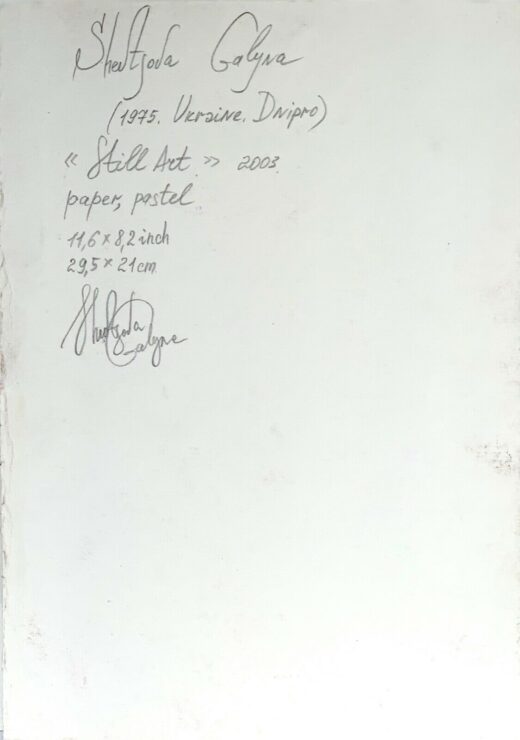 Shevtsova Galyna
(1975. Ukraine. Dnipro)
« Still Art » 2003.
paper, pastel
11,6 × 8,2 inch
29,5 × 21 cm
Galyna